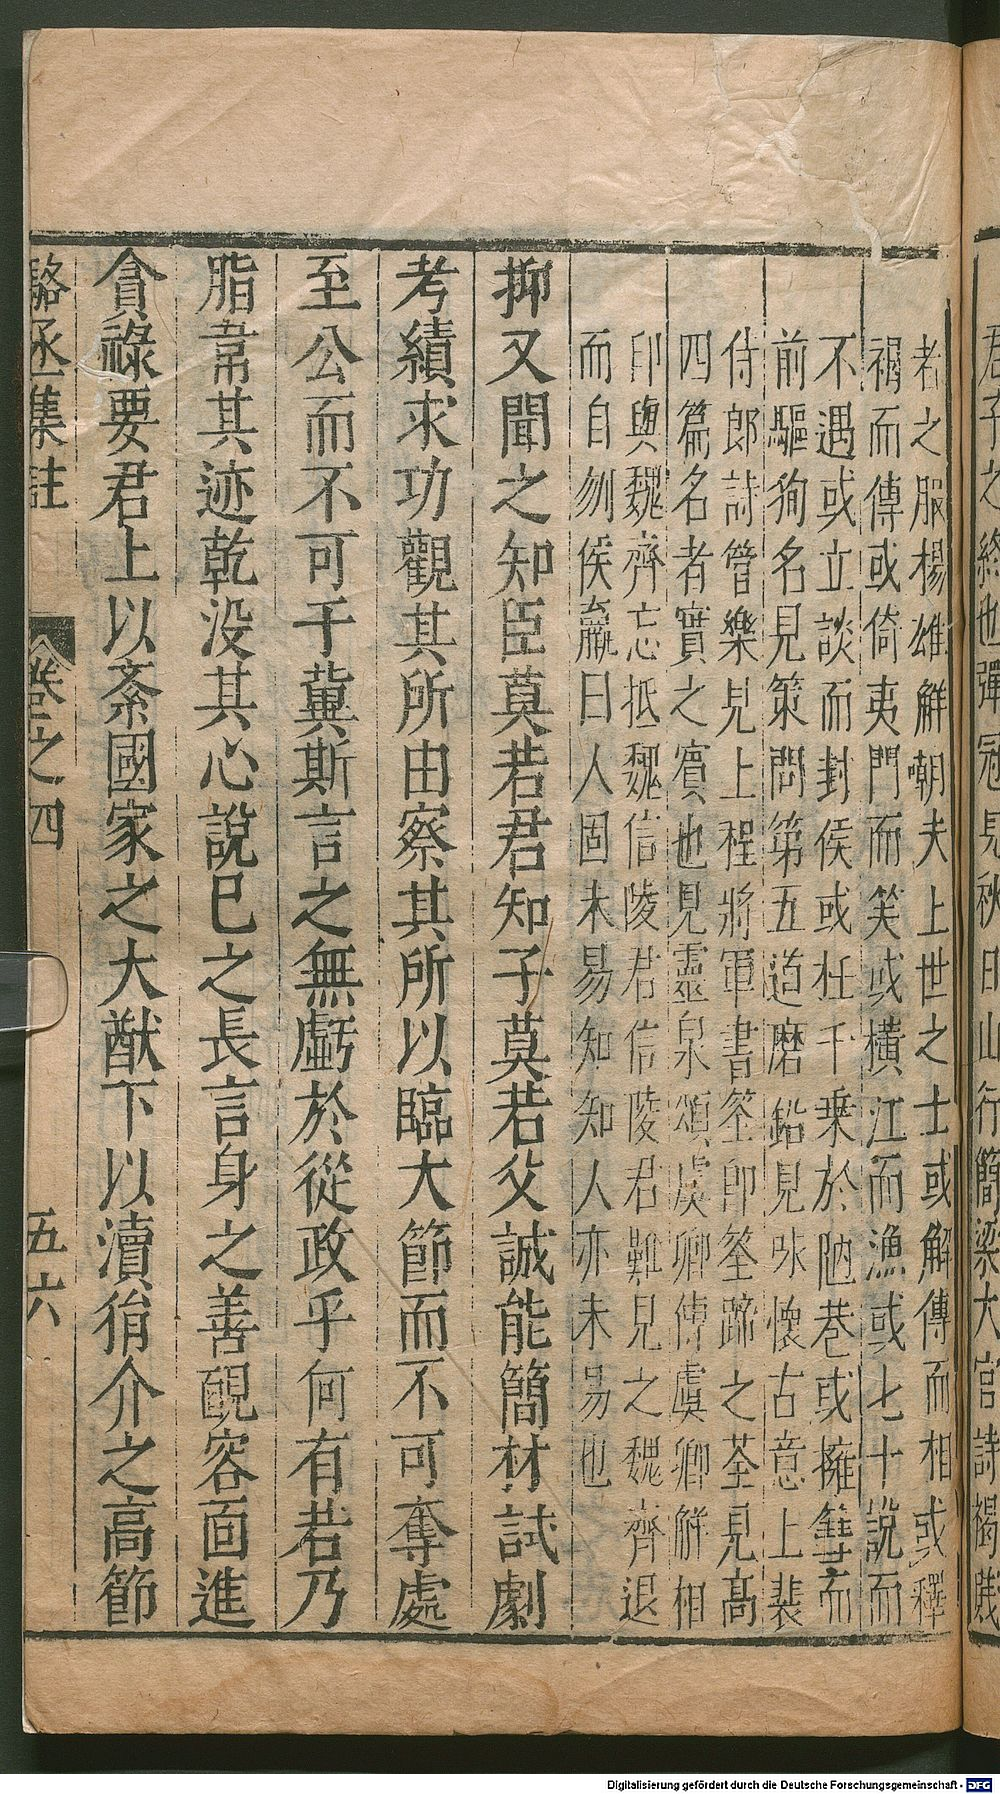 君子之終也彈冠見秋日山行簡梁大官詩褐賤
者之服楊雄解嘲夫上世之士或解傅而相或釋
褐而傅或倚夷門而笑或橫江而漁或七十說而
不遇或立談而封侯或枉千乗於陋巷或擁篲而
前驅狥名見策問第五道磨鉛見咏懷古意上裴
侍郎詩管樂見上程將軍書筌卽筌蹄之筌見高
四篇名者實之賓也見靈泉頌虞卿傳虞卿解相
印與魏齊忘抵魏信陵君信陵君難見之魏齊退
而自刎侯嬴曰人固未易知知人亦未易也
抑又聞之知臣莫若君知子莫若父誠能簡材試劇
考績求功觀其所由察其所以臨大節而不可奪處
至公而不可干冀斯言之無虧於從政乎何有若乃
脂韋其迹乾没其心說巳之長言身之善靦容面進
貪祿要君上以紊國家之大猷下以瀆狷介之高節
駱丞集註 卷之四 五六
Digitalisierung gefördert durch die Deutsche Forschungsgemeinschaft - DFG